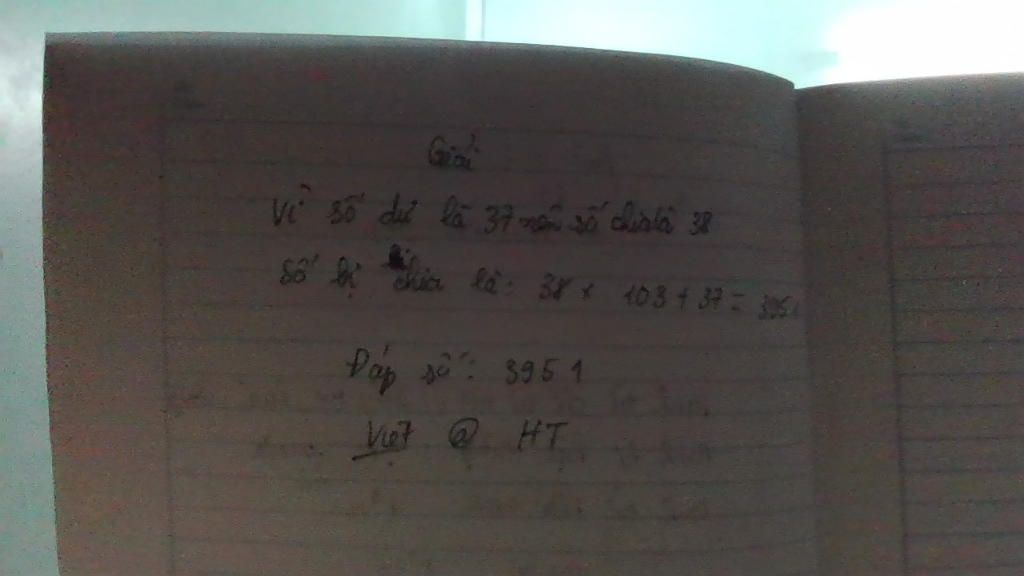 Giải
Vì số dư là 37 nên số chia là 38
Số bị chia là: 38 x 103 + 37 = 3951
Đáp số: 3951
Việt @ HT